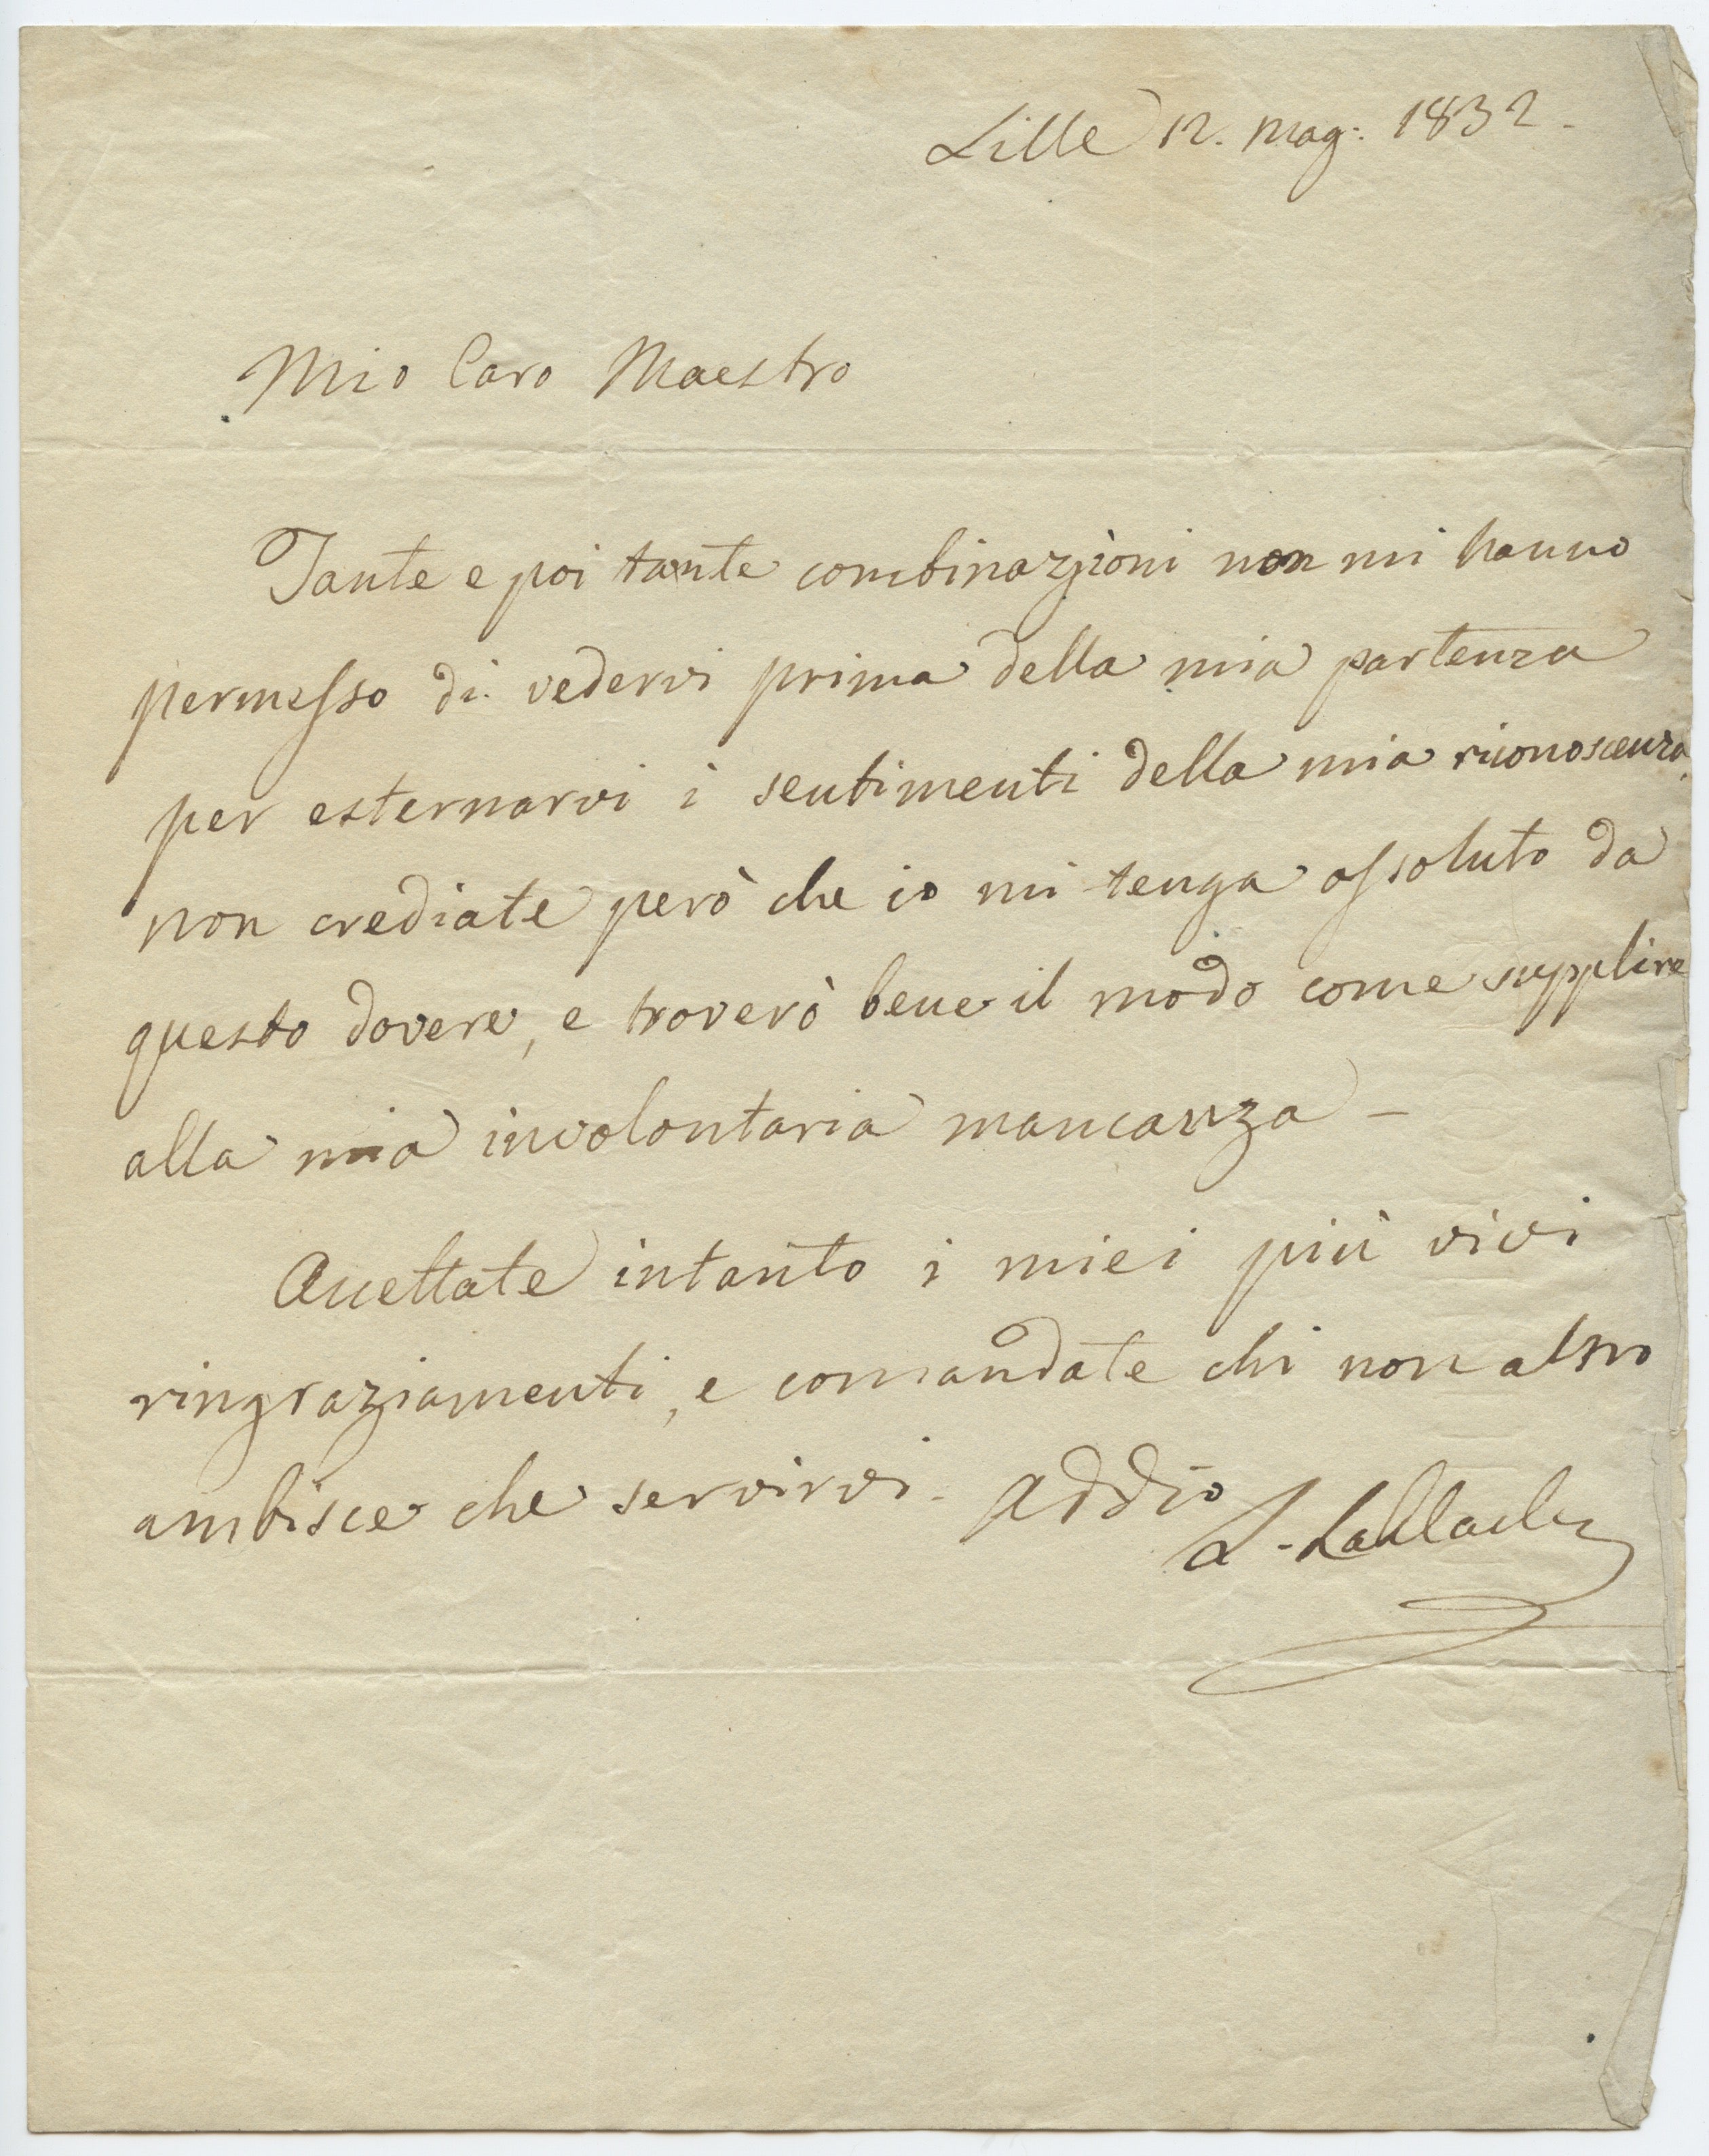 Lille 12. Mag: 1832 -
Mio Caro Maestro
Tante e poi tante combinazioni non mi hanno
permesso di vedervi prima della mia partenza
per esternarvi i sentimenti della mia riconoscenza,
non crediate però che io mi tenga assoluto da
questo dovere, e troverò bene il modo come supplire
alla mia involontaria mancanza -
Accettate intanto i miei più vivi
ringraziamenti, e comandate chi non altro
ambisce che servirvi - Addio
L. Lablache